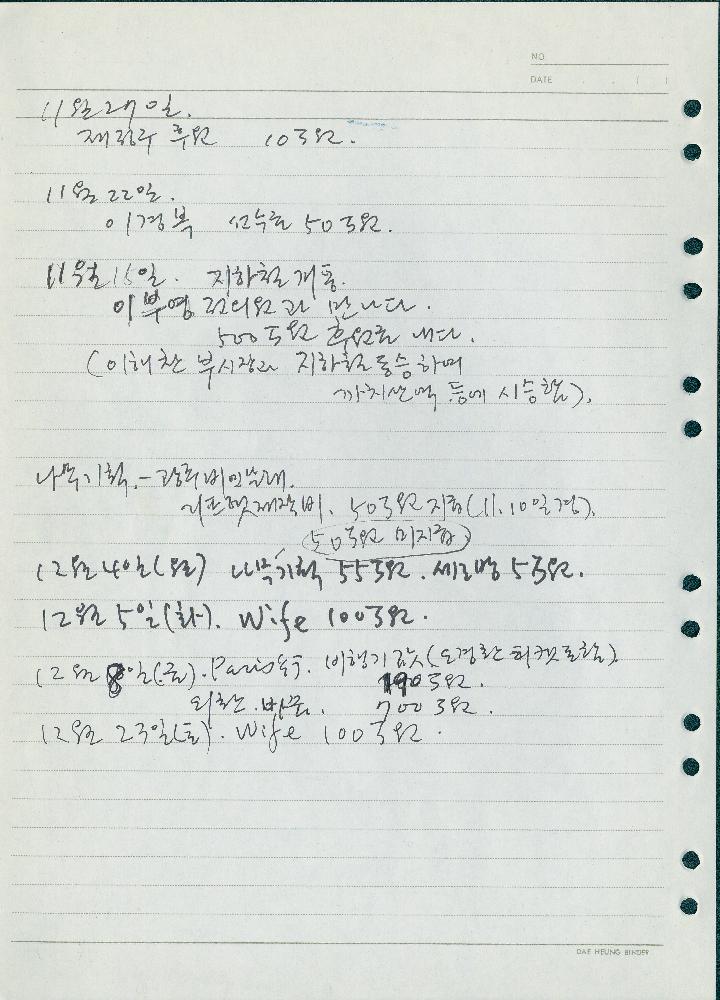 NO
DATE . . ( )
11월 27일.
후원 103원.
11월 22일.
이경복 50만원.
11월 15일. 지하철 개통.
이부영 전의원과 만나다.
500만원 후원금 내다.
(이해찬 부시장과 지하철 동승하며
까치산역 등에 시승함).
나무기획. - 광주비엔날레.
50만원 지급(11.10일경).
50만원 미지급
12월 4일(월) 나무기획 55만원. 세노방 5만원.
12월 5일(화). Wife 100만원.
12월 8일(금). Paris 비행기값(도경환 티켓포함)
190만원.
외환.바꿈. 700만원.
12월 23일(토). Wife 100만원.
DAE HEUNG BINDER